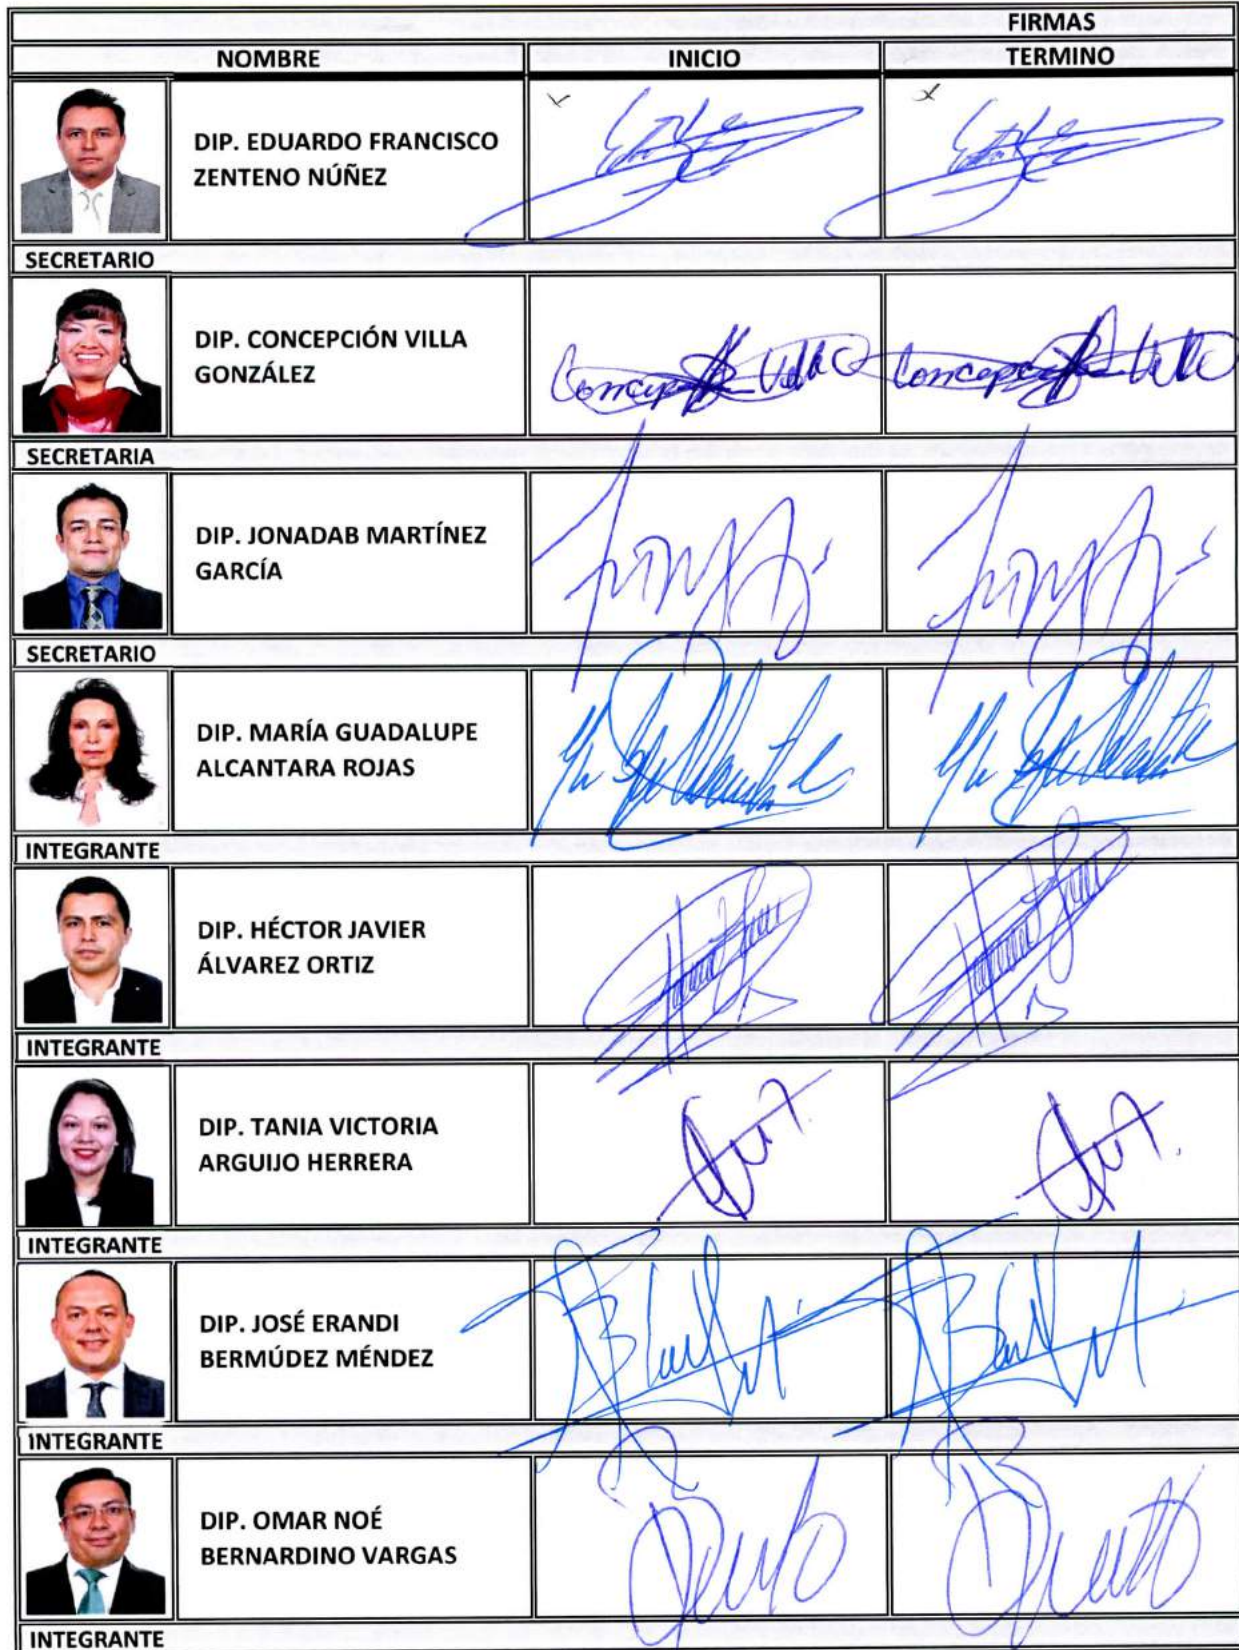 FIRMAS
NOMBRE INICIO TERMINO
DIP. EDUARDO FRANCISCO
ZENTENO NÚÑEZ
SECRETARIO
DIP. CONCEPCIÓN VILLA
GONZÁLEZ
Concepción Villa Concepción Villa
SECRETARIA
DIP. JONADAB MARTÍNEZ
GARCÍA
SECRETARIO
DIP. MARÍA GUADALUPE
ALCANTARA ROJAS
INTEGRANTE
DIP. HÉCTOR JAVIER
ÁLVAREZ ORTIZ
INTEGRANTE
DIP. TANIA VICTORIA
ARGUIJO HERRERA
INTEGRANTE
DIP. JOSÉ ERANDI
BERMÚDEZ MÉNDEZ
INTEGRANTE
DIP. OMAR NOÉ
BERNARDINO VARGAS
INTEGRANTE